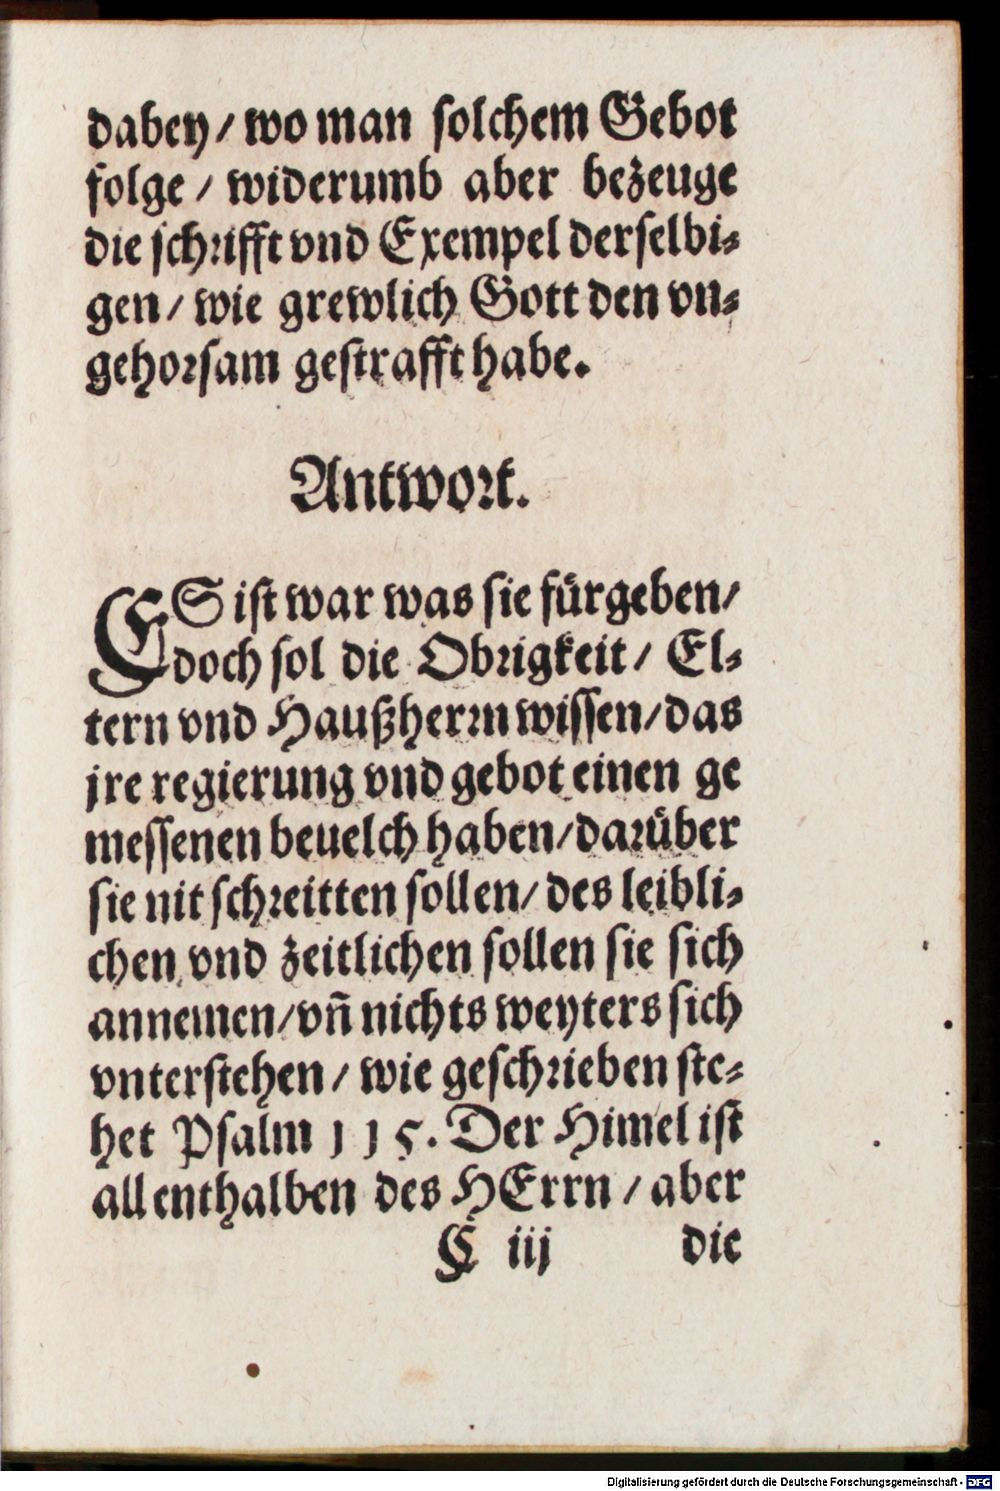 dabey/ wo man solchem Gebot
folge / widerumb aber bezeuge
die schrifft vnd Exempel derselbi-
gen/ wie grewlich Gott den vn-
gehorsam gestrafft habe.
Antwort.
ES ist war was sie fürgeben/
doch sol die Obrigkeit/ El-
tern vnd Haußherrn wissen/das
jre regierung vnd gebot einen ge
messenen beuelch haben/darüber
sie nit schreitten sollen/ des leibli-
chen vnd zeitlichen sollen sie sich
annemen/vñ nichts weyters sich
vnterstehen/ wie geschrieben ste-
het Psalm 115. Der Himel ist
allenthalben des HErrn / aber
C iij die
Digitalisierung gefördert durch die Deutsche Forschungsgemeinschaft - DFG